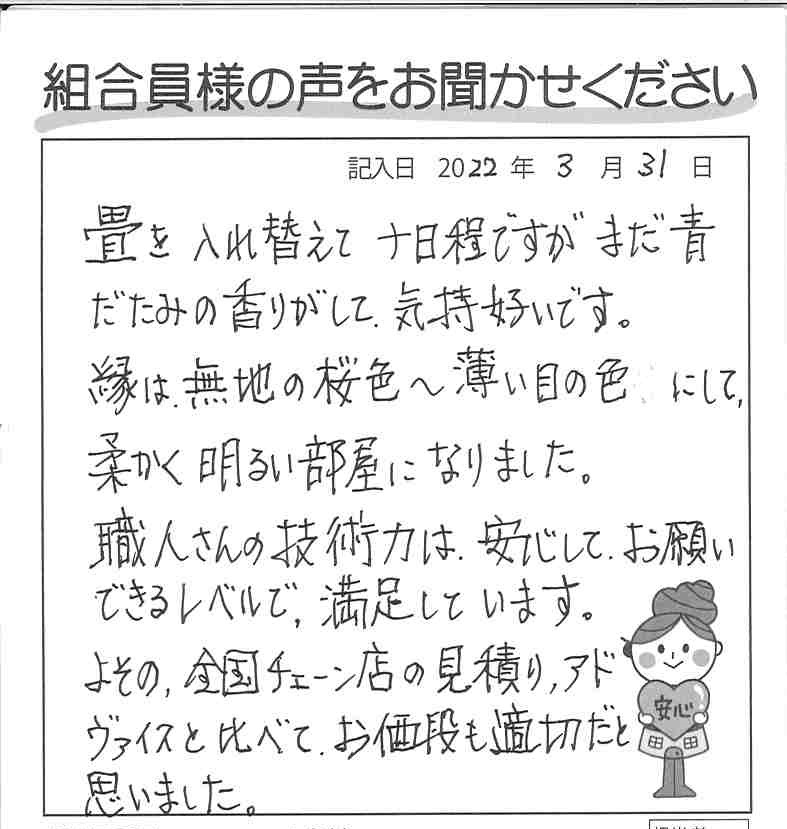 組合員様の声をお聞かせください
記入日 2022年 3 月 31 日
畳を入れ替えて十日程ですがまだ青
だたみの香りがして、気持好いです。
縁は、無地の桜色～薄い目の色にして、
柔かく明るい部屋になりました。
職人さんの技術力は、安心して、お願い
できるレベルで、満足しています。
よその、全国チェーン店の見積り、アド
ヴァイスと比べて、お価段も適切だと
思いました。
安心